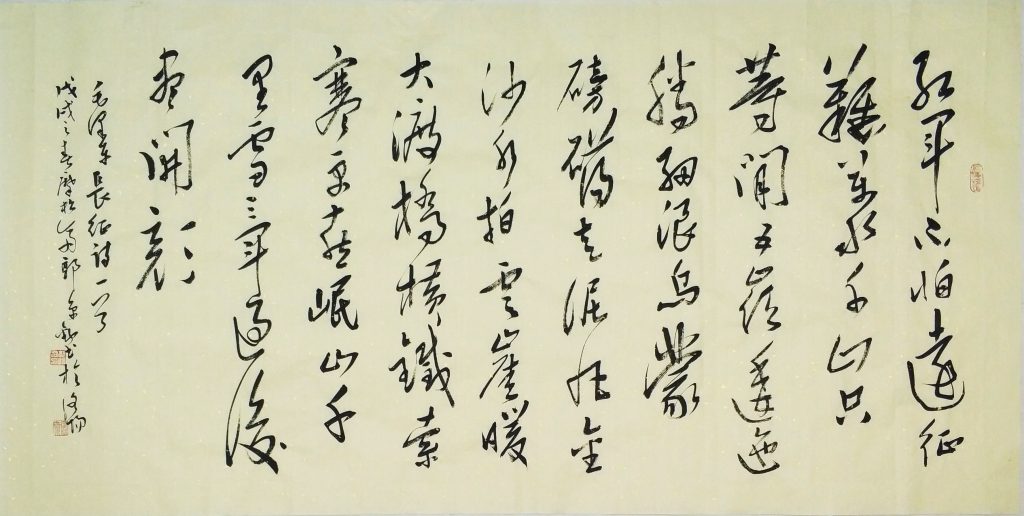 紅軍不怕遠征
難萬水千山只
等閒五嶺逶迤
騰細浪烏蒙
磅礴走泥丸金
沙水拍雲崖暖
大渡橋橫鐵索
寒更喜岷山千
里雪三軍過後
盡開顏
毛澤東長征詩一首
戊戌之春 書於洛陽